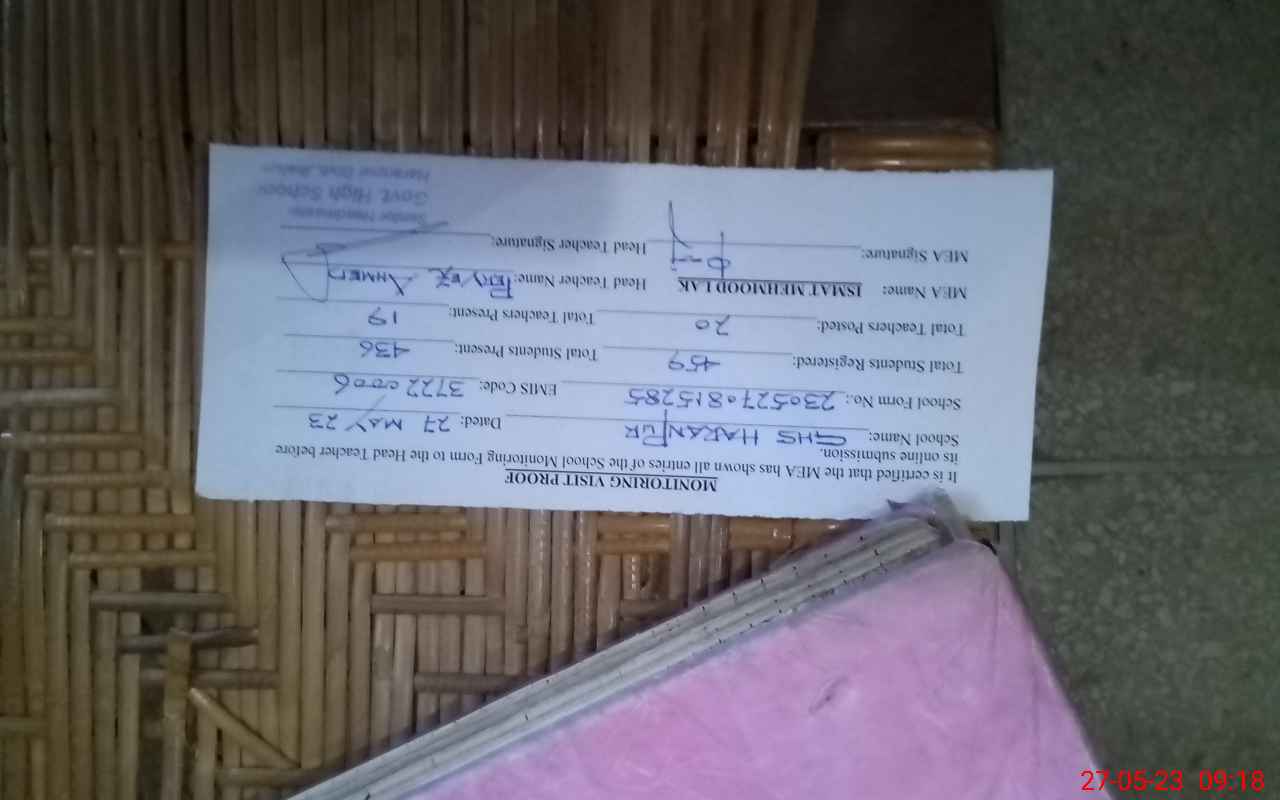 MONITORING VISIT PROOF
It is certified that the MEA has shown all entries of the School Monitoring Form to the Head Teacher before
its online submission.
School Name: GHS HARANPUR Dated: 27 MAY 23
School Form No.: 2305270815285 EMIS Code: 37220006
Total Students Registered: 459 Total Students Present: 436
Total Teachers Posted: 20 Total Teachers Present: 19
MEA Name: ISMAT MEHMOOD LAK Head Teacher Name: PERVEZ AHMED
MEA Signature: Head Teacher Signature:
Senior Headmaster
Govt. High School
Haranpur Distt. Jhelum
27-05-23 09:18